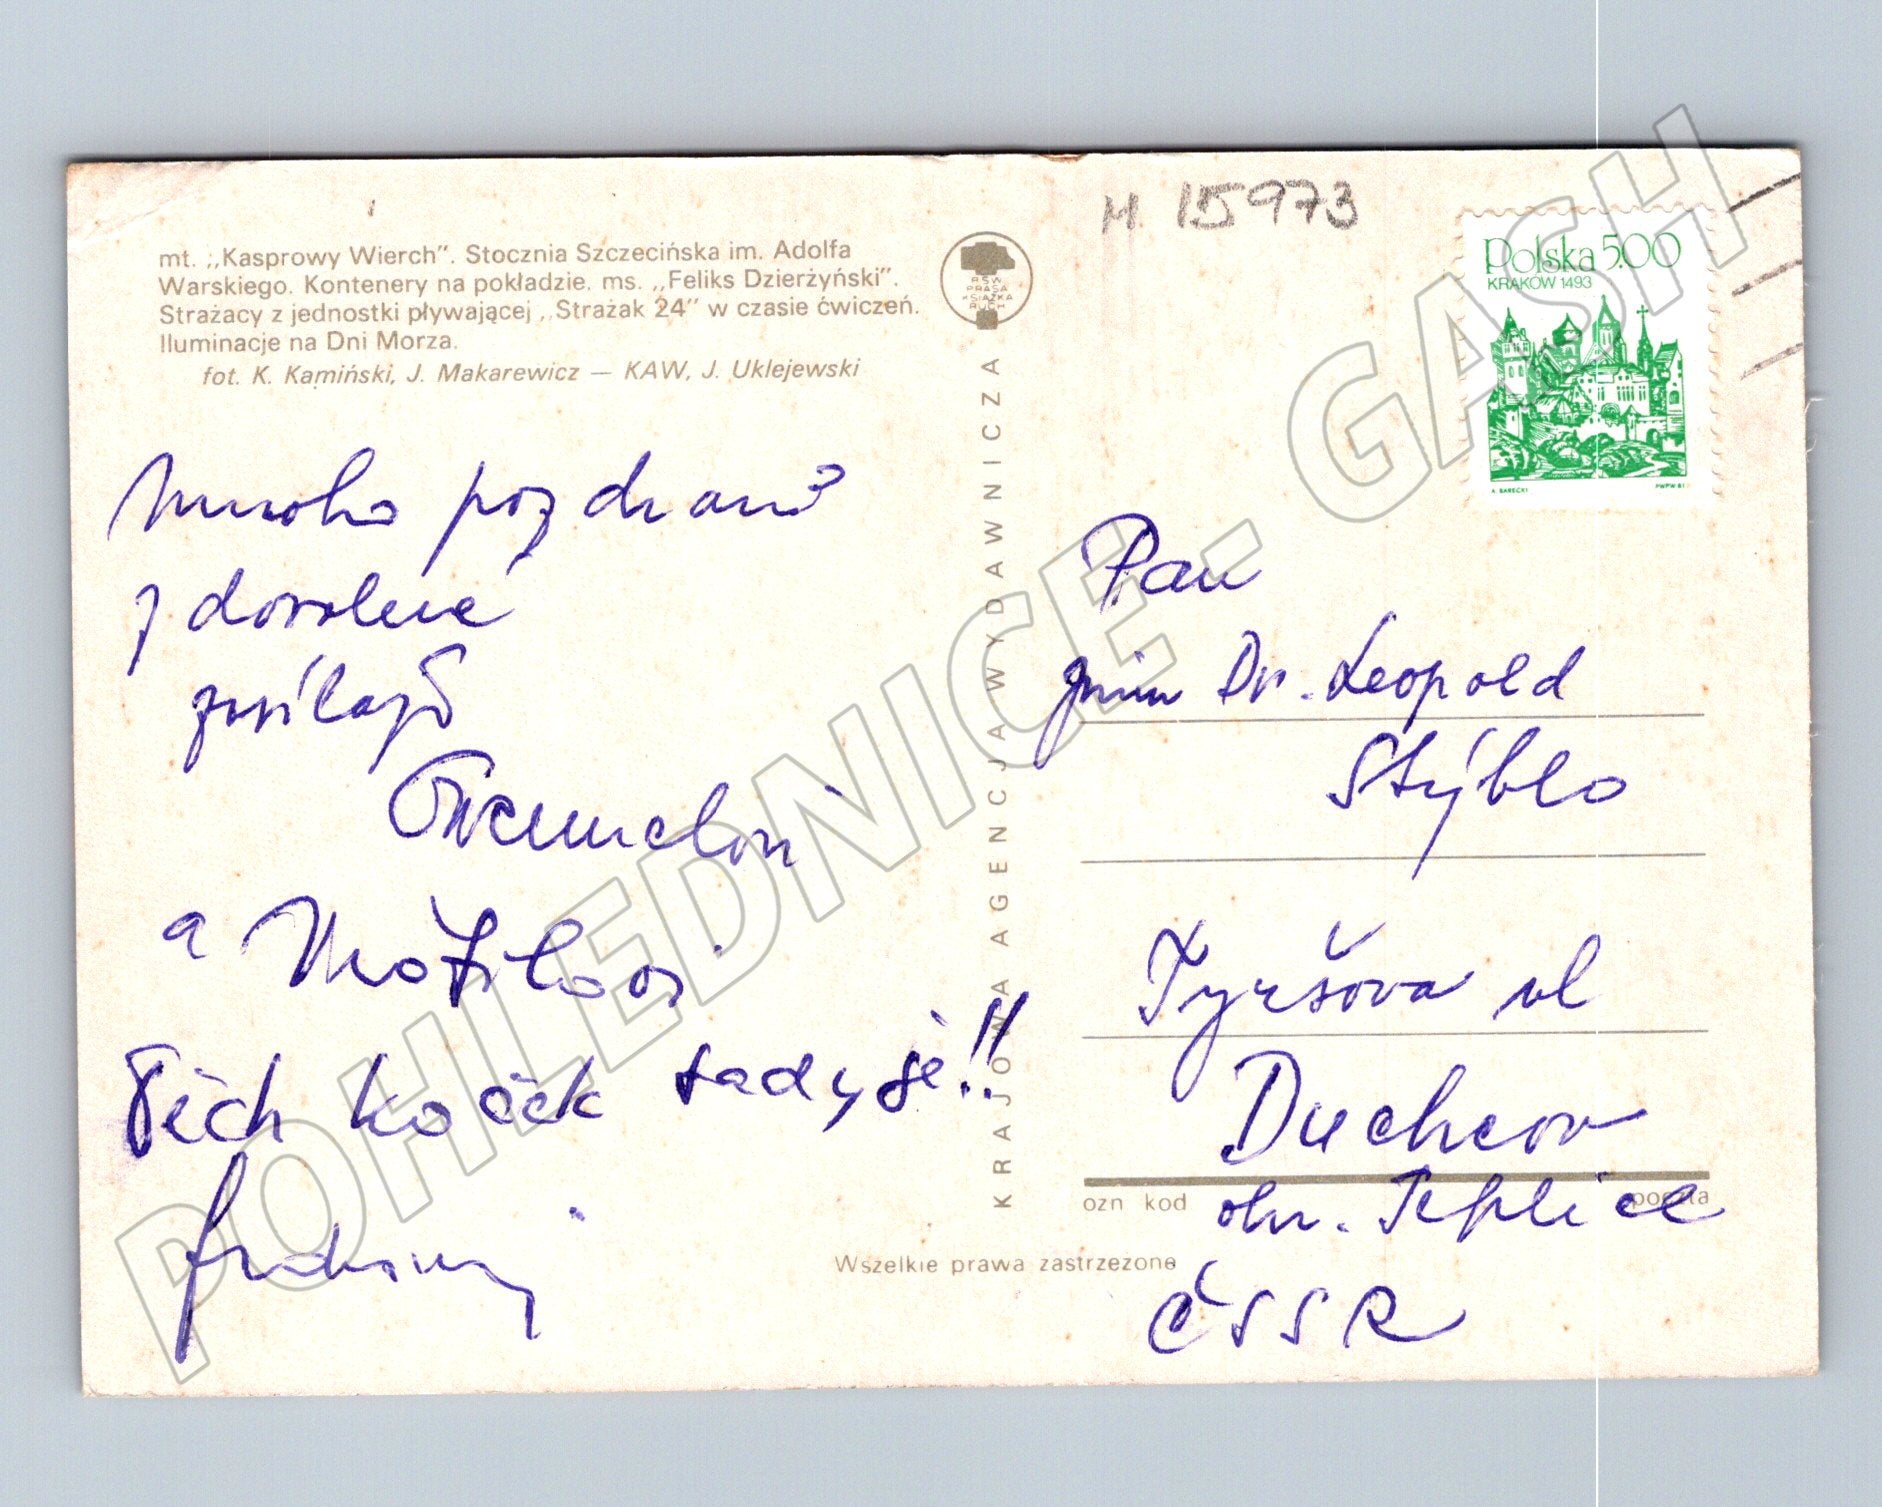 mt. „Kasprowy Wierch”. Stocznia Szczecińska im. Adolfa
Warskiego. Kontenery na pokładzie. ms. „Feliks Dzierżyński”.
Strażacy z jednostki pływającej „Strażak 24” w czasie ćwiczeń.
Iluminacje na Dni Morza.
fot. K. Kamiński, J. Makarewicz — KAW, J. Uklejewski
Mnoho pozdravů
z dovolené
zasílají
a
Těch koček tady je!!
RSW
PRASA
KSIĄŻKA
RUCH
KRAJOWA AGENCJA WYDAWNICZA
Wszelkie prawa zastrzeżone
M 15973
Polska 5.00
KRAKÓW 1493
A. BARECKI
PWPW 81
Pan
Dr. Leopold
Stýblo
Tyršova ul
Duchcov
ozn kod
poczta
okr. Teplice
ČSSR
POHLEDNICE - GASH